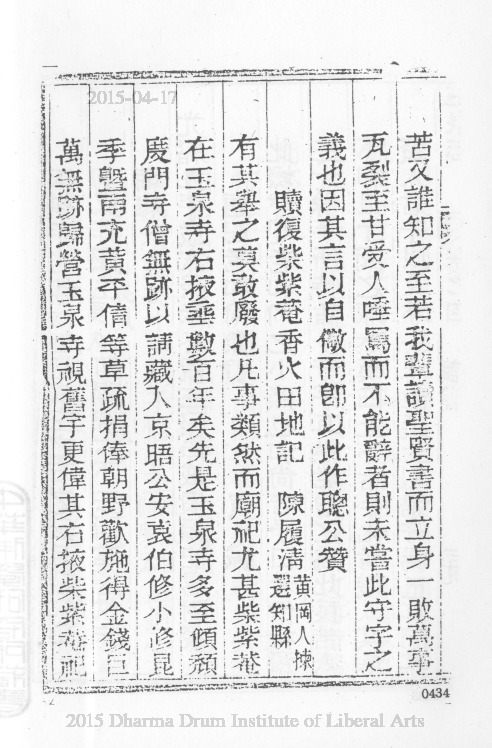 2015-04-17
苦又誰知之至若我輩讀聖賢書而立身一敗萬事
瓦裂至甘受人唾罵而不能辭者則未嘗此守字之
義也因其言以自儆而卽以此作聰公贊
贖復柴紫菴香火田地記 陳履清 黄岡人揀選知縣
有其舉之莫敢廢也凡事類然而廟祀尤甚柴紫菴
在玉泉寺右掖垂數百年矣先是玉泉寺多至傾頹
度門寺僧無跡以請藏入京晤公安袁伯修小修昆
季曁南充黄平倩等草疏捐俸朝野歡施得金錢巨
萬無跡歸營玉泉寺視舊宇更偉其右掖柴紫菴祀
0434
2015 Dharma Drum Institute of Liberal Arts